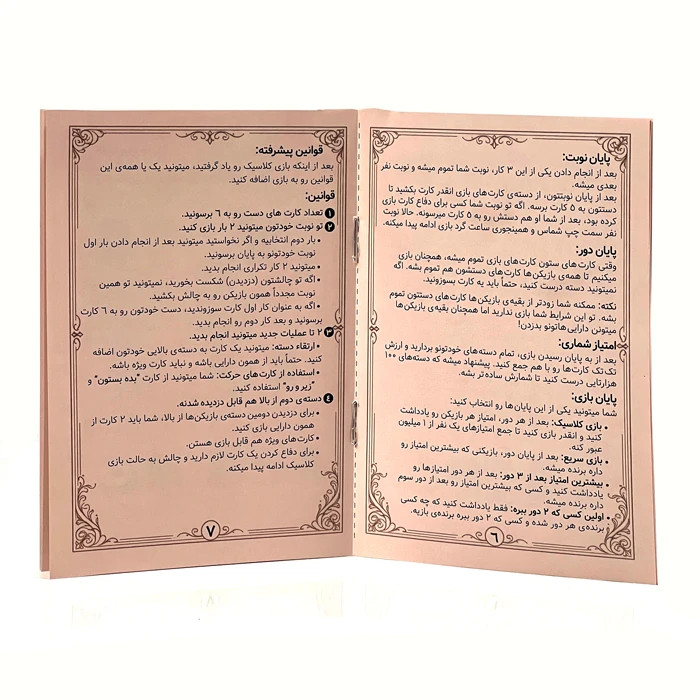 پایان نوبت:
بعد از انجام دادن یکی از این ۳ کار، نوبت شما تموم میشه و نوبت نفر
بعدی میشه.
بعد از پایان نوبتتون، از دسته‌ی کارت‌های بازی انقدر کارت بکشید تا
دستتون به ۵ کارت برسه. اگه تو نوبت شما کسی برای دفاع کارت بازی
کرده بود، بعد از شما او هم دستش رو به ۵ کارت میرسونه. حالا نوبت
نفر سمت چپ شماس و همینجوری ساعت گرد بازی ادامه پیدا میکنه.
پایان دور:
وقتی کارت های ستون کارت‌های بازی تموم میشه، همچنان بازی
میکنیم تا همه‌ی بازیکن‌ها کارت‌های دستشون هم تموم بشه. اگه
نمیتونید دسته درست کنید، حتماً باید یه کارت بسوزونید.
نکته: ممکنه شما زودتر از بقیه‌ی بازیکن‌ها کارت‌های دستتون تموم
بشه. تو این شرایط شما بازی ندارید اما همچنان بقیه‌ی بازیکن‌ها
میتونن دارایی‌هاتونو بدزدن!
امتیاز شماری:
بعد از به پایان رسیدن بازی، تمام دسته‌های خودتونو بردارید و ارزش
تک تک کارت‌ها رو با هم جمع کنید. پیشنهاد میشه که دسته‌های ۱۰۰
هزارتایی درست کنید تا شمارش ساده‌تر بشه.
پایان بازی:
شما میتونید یکی از این پایان‌ها رو انتخاب کنید:
• بازی کلاسیک: بعد از هر دور، امتیاز هر بازیکن رو یادداشت
کنید و انقدر بازی کنید تا جمع امتیازهای یک نفر از ۱ میلیون
عبور کنه.
• بازی سریع: بعد از پایان دور، بازیکنی که بیشترین امتیاز رو
داره برنده میشه.
• بیشترین امتیاز بعد از ۳ دور: بعد از هر دور امتیازها رو
یادداشت کنید و کسی که بیشترین امتیاز رو بعد از دور سوم
داره برنده میشه.
• اولین کسی که ۲ دور ببره: فقط یادداشت کنید که چه کسی
برنده‌ی هر دور شده و کسی که ۲ دور ببره برنده‌ی بازیه.
۶
قوانین پیشرفته:
بعد از اینکه بازی کلاسیک رو یاد گرفتید، میتونید یک یا همه‌ی این
قوانین رو به بازی اضافه کنید.
قوانین:
۱ تعداد کارت های دست رو به ۶ برسونید.
۲ تو نوبت خودتون میتونید ۲ بار بازی کنید.
• بار دوم انتخابیه و اگر نخواستید میتونید بعد از انجام دادن بار اول
نوبت خودتونو به پایان برسونید.
• میتونید ۲ کار تکراری انجام بدید.
• اگه تو چالشتون (دزدیدن) شکست بخورید، نمیتونید تو همین
نوبت مجدداً همون بازیکن رو به چالش بکشید.
• اگه به عنوان کار اول کارت سوزوندید، دست خودتون رو به ۶ کارت
برسونید و بعد کار دوم رو انجام بدید.
۳ ۲ تا عملیات جدید میتونید انجام بدید.
• ارتقاء دسته: میتونید یک کارت به دسته‌ی بالایی خودتون اضافه
کنید. حتماً باید از همون دارایی باشه و نباید کارت ویژه باشه.
• استفاده از کارت های حرکت: شما میتونید از کارت "بده بستون" و
"زیر و رو" استفاده کنید.
۴ دسته‌ی دوم از بالا هم قابل دزدیده شدنه.
• برای دزدیدن دومین دسته‌ی بازیکن‌ها از بالا، شما باید ۲ کارت از
همون دارایی بازی کنید.
• کارت‌های ویژه هم قابل بازی هستن.
• برای دفاع کردن یک کارت لازم دارید و چالش به حالت بازی
کلاسیک ادامه پیدا میکنه.
۷